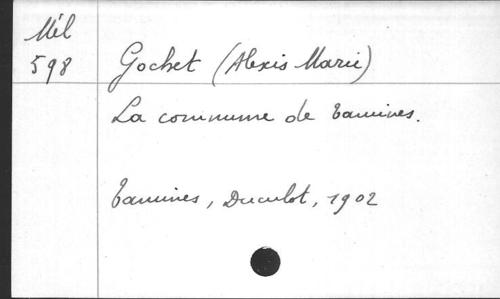 Mél
598
Gochet (Alexis Marie)
La commune de Tamines.
Tamines, Duculot, 1902